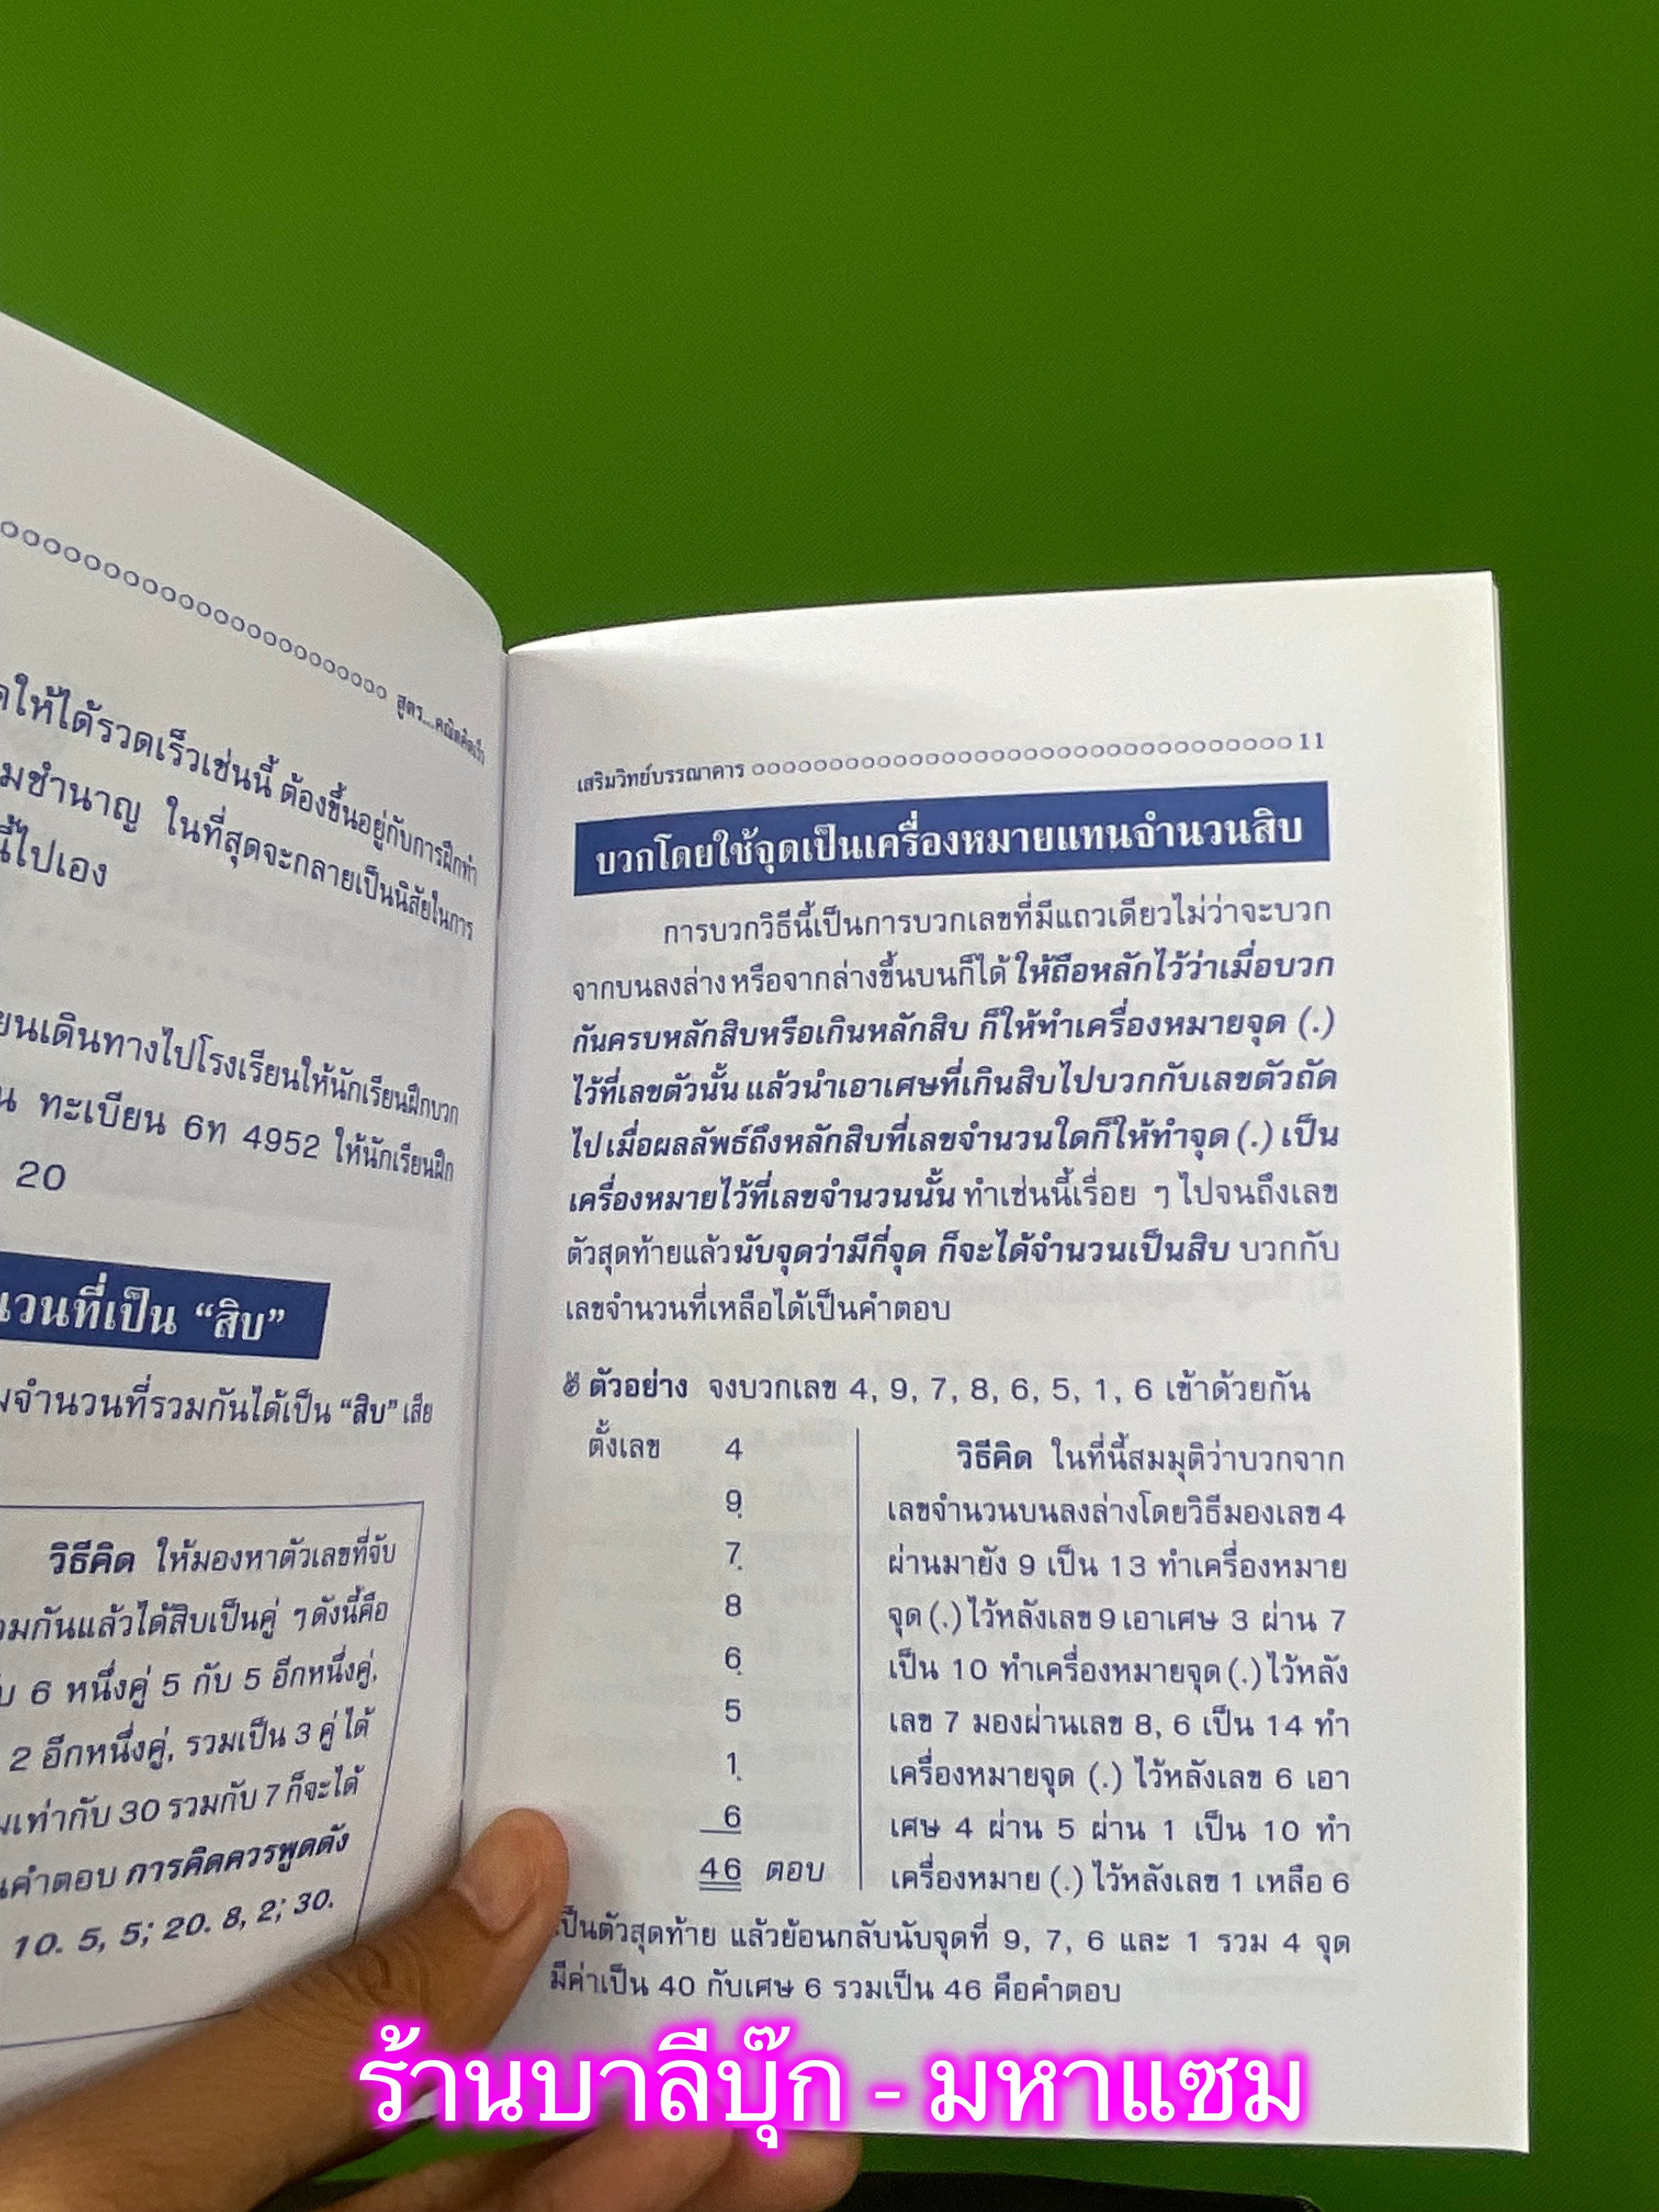 สูตร...คณิตคิดเร็ว
ให้ได้รวดเร็วเช่นนี้ ต้องขึ้นอยู่กับการฝึกทำ
ชำนาญ ในที่สุดจะกลายเป็นนิสัยในการ
ไปเอง
เดินทางไปโรงเรียนให้นักเรียนฝึกบวก
ทะเบียน 6ท 4952 ให้นักเรียนฝึก
20
ที่เป็น “สิบ”
จำนวนที่รวมกันได้เป็น “สิบ” เสีย
วิธีคิด ให้มองหาตัวเลขที่จับ
กันแล้วได้สิบเป็นคู่ ๆ ดังนี้คือ
6 หนึ่งคู่ 5 กับ 5 อีกหนึ่งคู่,
2 อีกหนึ่งคู่, รวมเป็น 3 คู่ ได้
เท่ากับ 30 รวมกับ 7 ก็จะได้
คำตอบ การคิดควรพูดดัง
10. 5, 5; 20. 8, 2; 30.
เสริมวิทย์บรรณาคาร 11
บวกโดยใช้จุดเป็นเครื่องหมายแทนจำนวนสิบ
การบวกวิธีนี้เป็นการบวกเลขที่มีแถวเดียวไม่ว่าจะบวก
จากบนลงล่าง หรือจากล่างขึ้นบนก็ได้ ให้ถือหลักไว้ว่าเมื่อบวก
กันครบหลักสิบหรือเกินหลักสิบ ก็ให้ทำเครื่องหมายจุด (.)
ไว้ที่เลขตัวนั้น แล้วนำเอาเศษที่เกินสิบไปบวกกับเลขตัวถัด
ไป เมื่อผลลัพธ์ถึงหลักสิบที่เลขจำนวนใดก็ให้ทำจุด (.) เป็น
เครื่องหมายไว้ที่เลขจำนวนนั้น ทำเช่นนี้เรื่อย ๆ ไปจนถึงเลข
ตัวสุดท้ายแล้วนับจุดว่ามีกี่จุด ก็จะได้จำนวนเป็นสิบ บวกกับ
เลขจำนวนที่เหลือได้เป็นคำตอบ
ตัวอย่าง จงบวกเลข 4, 9, 7, 8, 6, 5, 1, 6 เข้าด้วยกัน
ตั้งเลข 4
9.
7.
8
6.
5
1.
6
46 ตอบ
วิธีคิด ในที่นี้สมมุติว่าบวกจาก
เลขจำนวนบนลงล่างโดยวิธีมองเลข 4
ผ่านมายัง 9 เป็น 13 ทำเครื่องหมาย
จุด (.) ไว้หลังเลข 9 เอาเศษ 3 ผ่าน 7
เป็น 10 ทำเครื่องหมายจุด (.) ไว้หลัง
เลข 7 มองผ่านเลข 8, 6 เป็น 14 ทำ
เครื่องหมายจุด (.) ไว้หลังเลข 6 เอา
เศษ 4 ผ่าน 5 ผ่าน 1 เป็น 10 ทำ
เครื่องหมาย (.) ไว้หลังเลข 1 เหลือ 6
เป็นตัวสุดท้าย แล้วย้อนกลับนับจุดที่ 9, 7, 6 และ 1 รวม 4 จุด
มีค่าเป็น 40 กับเศษ 6 รวมเป็น 46 คือคำตอบ
ร้านบาลีบุ๊ก - มหาแซม